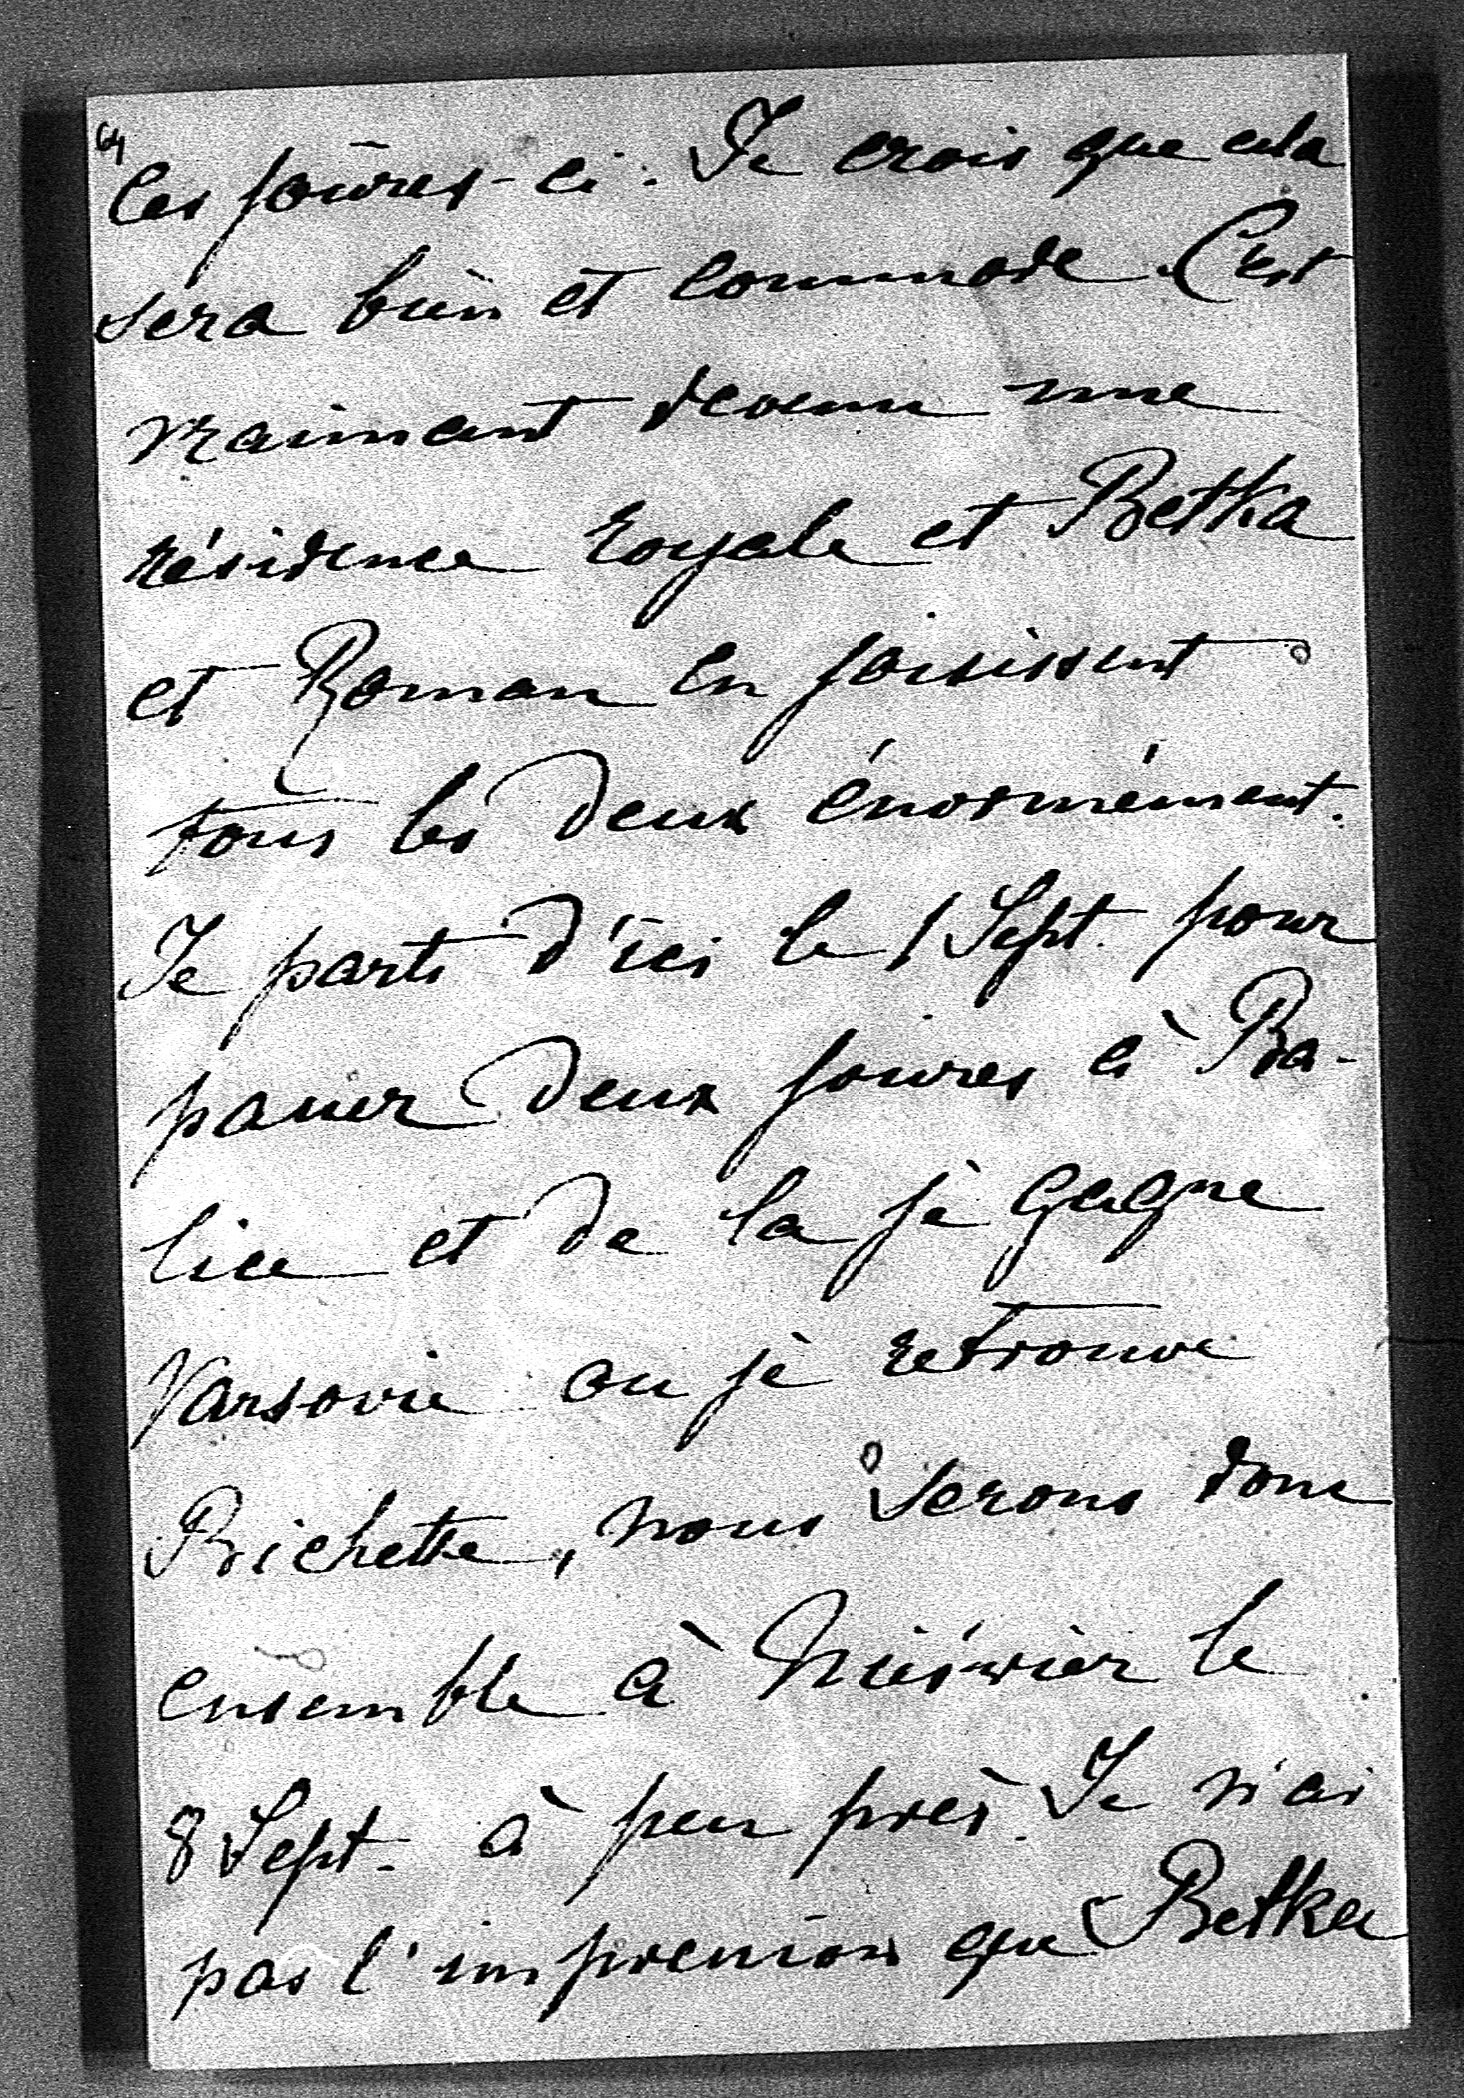 64
ces joûres-ci. Je crois que cela
sera bien et commode. C'est
vraiment devenu une
résidence royale et Betka
et Roman en joiuissent
tous les deux énormément.
Je parts d'ici le 1 Sept. pour
passer deux joures à Ba-
lice et de la je gagne
Varsovie ou je retrouve
Bichette, nous serons donc
ensemble à Nieświez le
8 Sept. à peu près. Je n'ai
pas l'impression que Betka